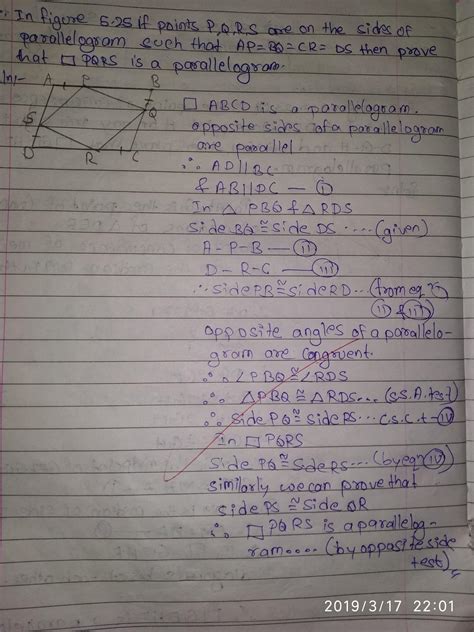 In figure 5.25 If points P,Q,R,S are on the sides of
parallelogram such that AP=BQ=CR=DS then prove
that □ PQRS is a parallelogram.
ln:-
A P B
S Q
D R C
□ ABCD is a parallelogram.
opposite sides of a parallelogram
are parallel
∴ AD||BC
& AB||DC — (i)
In △ PBQ & △ RDS
Side BQ ≅ Side DS .... (given)
A-P-B — (ii)
D-R-C — (iii)
∴ side PB ≅ Side RD... (from eq (i)
(ii) & (iii))
opposite angles of a parallelo-
gram are congruent.
∴ ∠PBQ ≅ ∠RDS
∴ △PBQ ≅ △RDS... (S.S.A. test)
∴ Side PQ ≅ Side RS... C.S.C.t - (iv)
In □ PQRS
Side PQ ≅ Side RS... (by eqn (iv))
similarly we can prove that
side PS ≅ Side QR
∴ □ PQRS is a parallelog-
ram.... (by opposite side
test)
2019/3/17 22:01